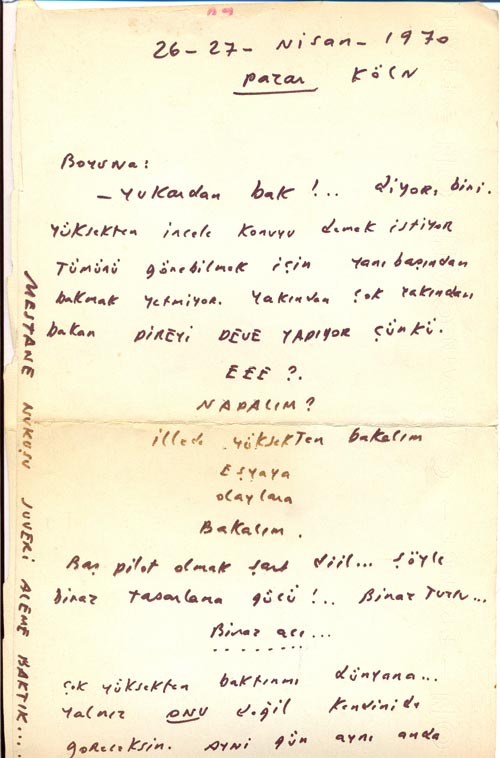 26-27- Nisan - 1970
Pazar KÖLN
Boyuna:
- Yukardan bak!.. diyor, biri.
Yüksekten incele konuyu demek istiyor
Tümünü görebilmek için yanıbaşından
bakmak yetmiyor. Yakından çok yakından
bakan PİREYİ DEVE YAPIYOR ÇÜNKÜ.
EEE?.
NAPALIM?
İllede yüksekten bakalım
Eşyaya
olaylara
Bakalım.
Baş pilot olmak şart diil... şöyle
biraz tasarlama gücü!.. Biraz
Biraz acı...
Çok yüksekten baktınmı dünyana...
Yalnız ONU değil kendinide
göreceksin. Ayni gün aynı anda
MESTANE NUKUŞU SUVERİ ALEME BAKTIK...